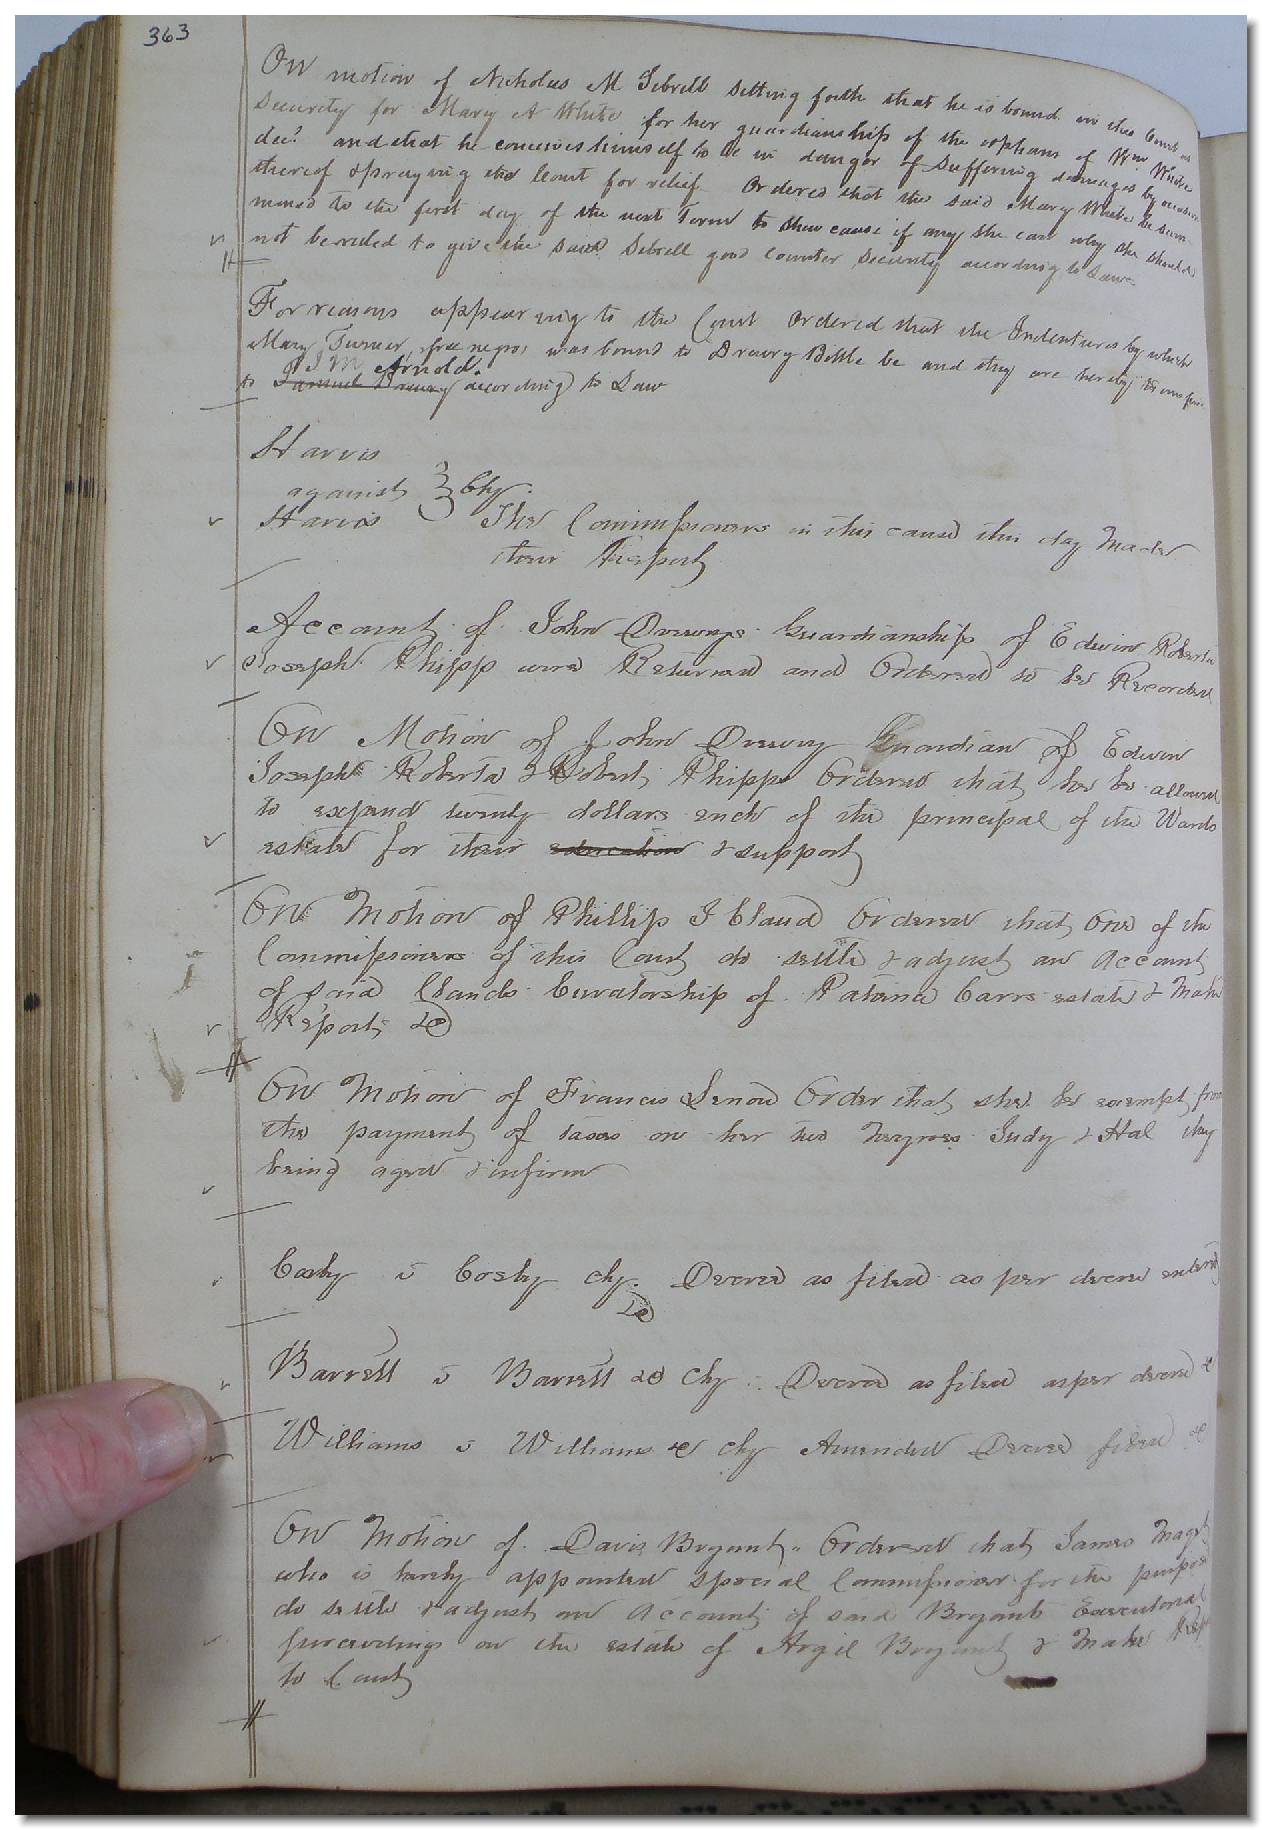 363
On motion of Nicholas M Sebrell setting forth that he is bound in this Court as
Security for Mary A White for her guardianship of the orphans of Wm White
decd and that he conceives himself to be in danger of suffering damages by reason
thereof & praying the Court for relief Ordered that the said Mary White be sum-
moned to the first day of the next Term to shew cause if any she can why she should
not be ruled to give the said Sebrell good Counter Security according to Law
For reasons appearing to the Court Ordered that the Indentures by which
Mary Turner, free negro, was bound to Drewry Bittle be and they are hereby
Arnold.
to Samuel Drewry according to Law
Harris
against Chy.
Harris The Commissioners in this cause this day made
their Report
Account of John Drewrys Guardianship of Edwin Roberta
Joseph Phipps were Returned and Ordered to be Recorded
On Motion of John Drewry Guardian of Edwin
Joseph Roberta & Robert Phipps Ordered that he be allowed
to expend twenty dollars each of the principal of the Wards
estate for their education & support
On Motion of Phillip J Claud Ordered that One of the
Commissioners of this Court do settle & adjust an Account
of said Clauds Curatorship of Carrs estate & Make
Report &c
On Motion of Francis Order that she be exempt from
the payment of taxes on her two Negroes Judy & Hal they
being aged & infirm
Cosby v Cosby chy. Decree as filed as per decree entered
&c
Barrett v Barrett &c Chy. Decree as filed as per decree &c
Williams v Williams &c chy Amended Decree filed &c
On Motion of Davis Bryant Ordered that James Maget
who is hereby appointed special Commissioner for the purpose
do settle & adjust an Account of said Bryants Executorial
proceedings on the estate of Argil Bryant & Make
to Court